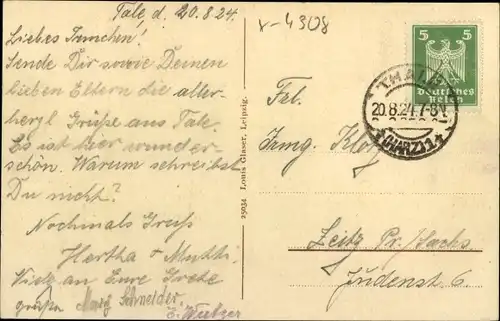 Tale, d. 20.8.24.
Liebes Irmchen!
Sende Dir sowie Deinen
lieben Eltern die aller-
herzl Grüße aus Tale.
Es ist hier wunder-
schön. Warum schreibst
Du nicht?
Nochmals Gruß
Hertha + Mutti.
an Eure Grete
grüße Marg Schneider.
x-4308
25034 Louis Glaser, Leipzig.
5 5
Deutsches
Reich
THALE
20.8.24.7-8V
(HARZ)1
Frl.
Irmg. Klotz
Zeitz Pr./Sachs
Judenst. 6.